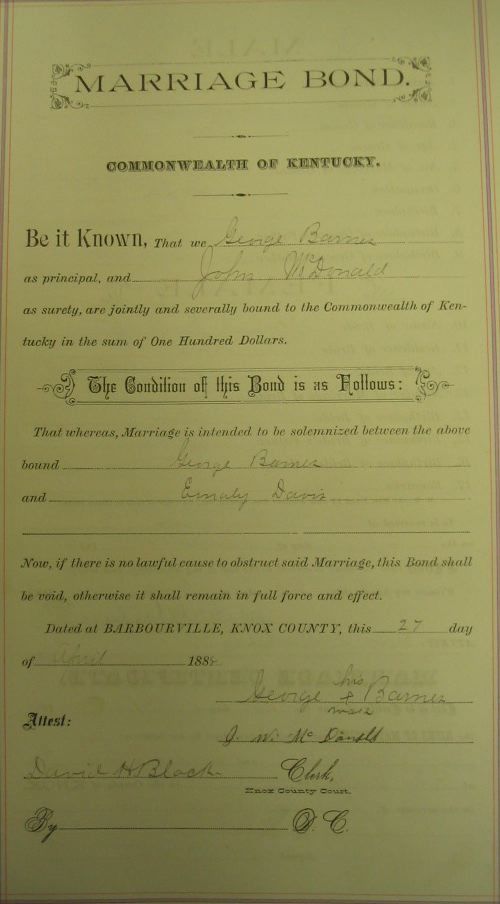 MARRIAGE BOND.
COMMONWEALTH OF KENTUCKY.
Be it Known, That we George Barnes
as principal, and John McDonald
as surety, are jointly and severally bound to the Commonwealth of Ken-
tucky in the sum of One Hundred Dollars.
The Condition of this Bond is as Follows:
That whereas, Marriage is intended to be solemnized between the above
bound George Barnes
and Emaly Davis
Now, if there is no lawful cause to obstruct said Marriage, this Bond shall
be void, otherwise it shall remain in full force and effect.
Dated at BARBOURVILLE, KNOX COUNTY, this 27 day
of April 188
his
George + Barnes
mark
Attest:
J. W. McDonald
David H Black Clerk,
Knox County Court.
By D. C.